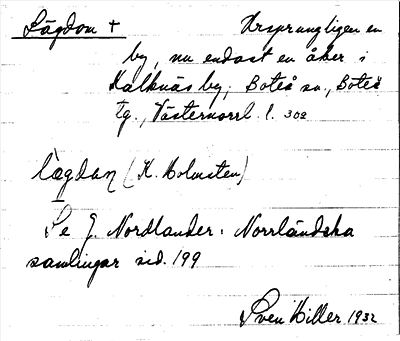 Lägdom + Ursprungligen en
by, nu endast en åker i
Kalknäs by, Boteå sn., Boteå
tg., Västernorrl. l. 302
lægdan (K. Holmsten)
Se J. Nordlander: Norrländska
samlingar sid. 199
Sven Hiller 1932